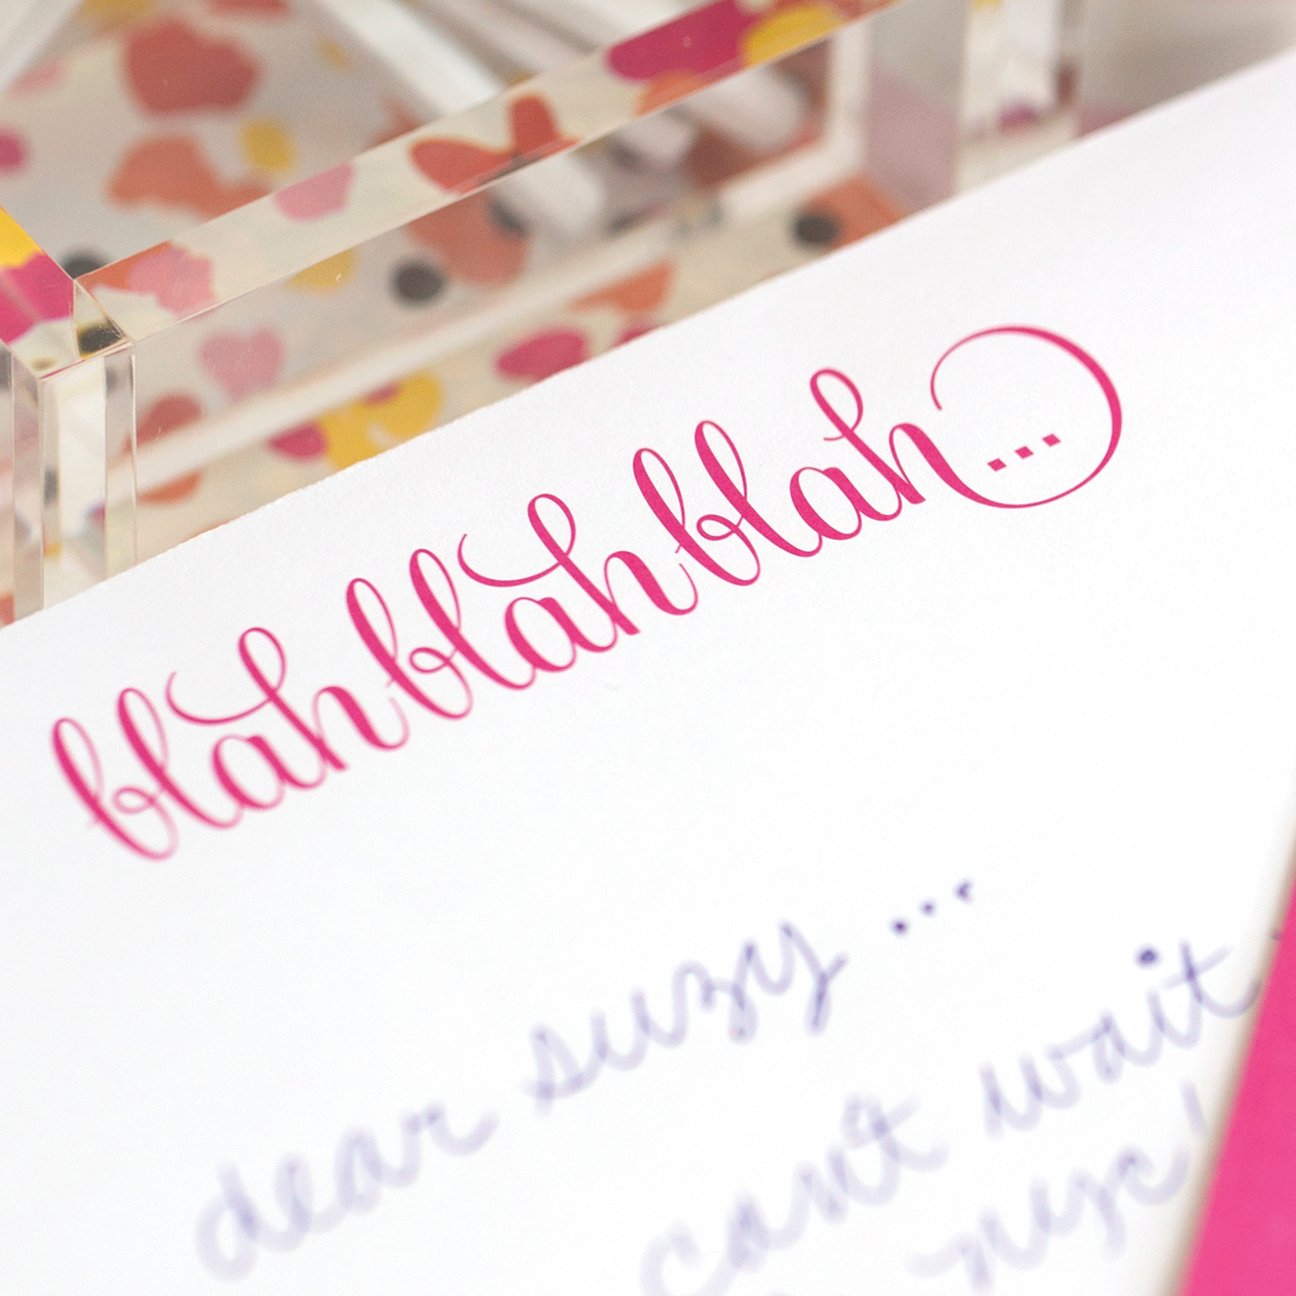 blah blah blah...
dear suzy...
cant wait
nyc!